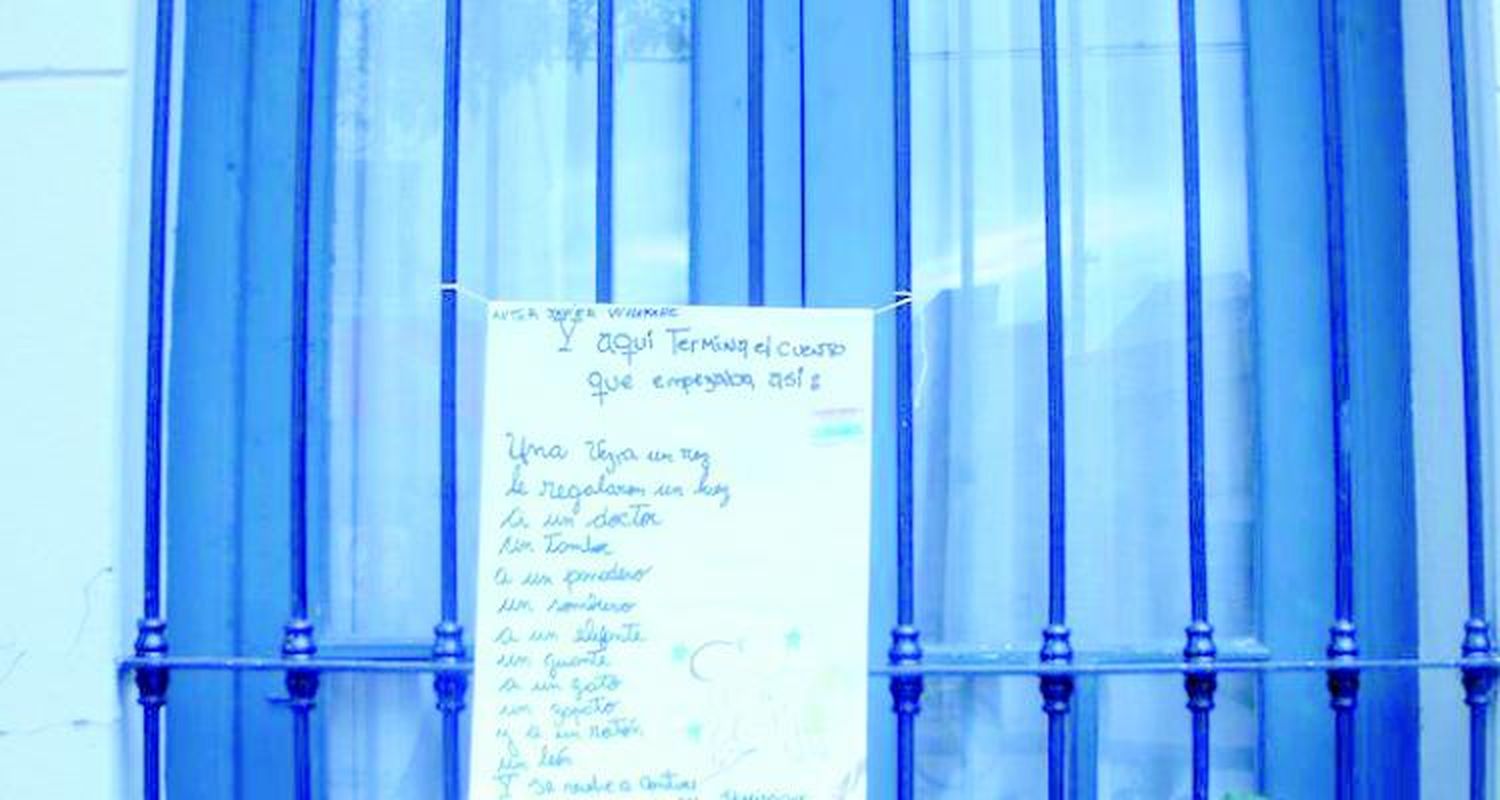 AUTOR JAVIER VILLAFAÑE
Y aquí Termina el cuento
que empezaba así:
Una Vez a un rey
le regalaron un buey
a un doctor
un Tambor
a un panadero
un sombrero
a un elefante
un guante
a un gato
un zapato
y a un ratón
un león
Y se vuelve a contar